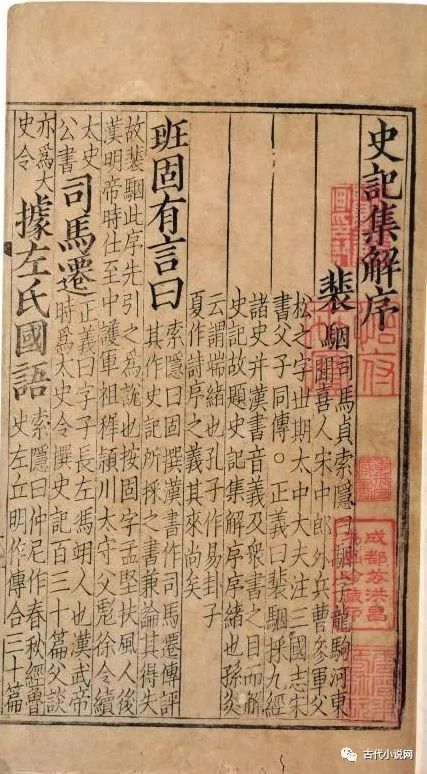 史記集解序
裴駰司馬貞索隱曰駰字龍駒河東
聞喜人宋中郎外兵曹參軍父
松之字世期太中大夫注三國志宋
書父子同傳○正義曰裴駰採九經
諸史并漢書音義及衆書之目而解
史記故題史記集解序序緒也孫炎
云謂端緒也孔子作易封子
夏作詩序之義其來尚矣
班固有言曰
索隱曰固撰漢書作司馬遷傳評
其作史記所採之書兼論其得失
故裴駰此序先引之爲說也按固字孟堅扶風人後
漢明帝時仕至中護軍祖穉潁川太守父彪徐令續
太史
公書
司馬遷
正義曰字子長左馮翊人也漢武帝
時爲太史令撰史記百三十篇父談
亦爲大
史令
據左氏國語
索隱曰仲尼作春秋經魯
史左丘明作傳合三十篇
古代小说网